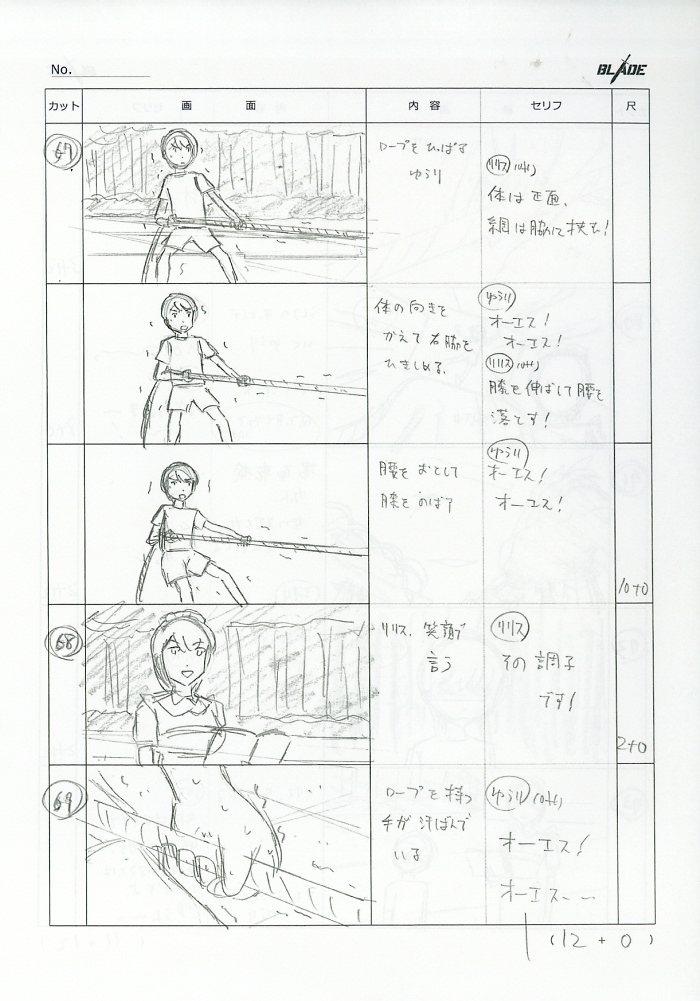 No.
BLADE
カット 画面 内容 セリフ 尺
67
ロープをひっぱる
ゆうり
リリス (off)
体は正面、
綱は脇に挟む!
体の向きを
かえて右脇を
ひきしめる、
ゆうり
オーエス!
オーエス!
リリス (off)
膝を伸ばして腰を
落とす!
腰をおとして
膝をのばす
ゆうり
オーエス!
オーエス!
10+0
68
リリス、笑顔で
言う
リリス
その調子
です!
2+0
69
ロープを持つ
手が汗ばんで
いる
ゆうり (off)
オーエス!
オーエス〜〜
(12+0)